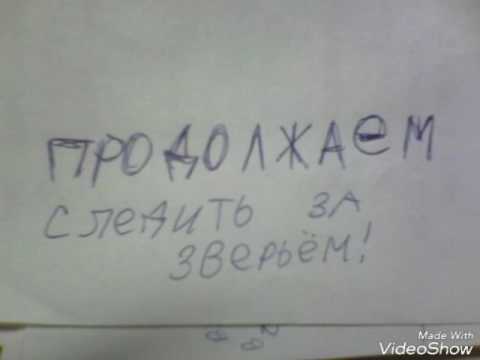 ПРОДОЛЖАЕМ
СЛЕДИТЬ ЗА
ЗВЕРЬЁМ!
Made With
VideoShow